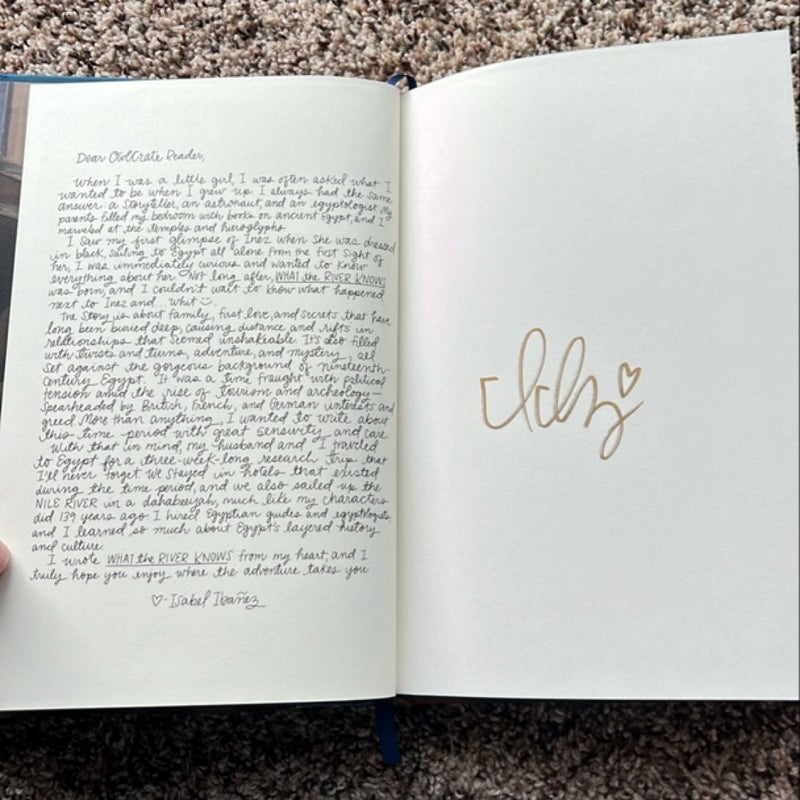 Dear OwlCrate Reader,
When I was a little girl, I was often asked what I
wanted to be when I grew up. I always had the same
answer: a storyteller, an astronaut, and an egyptologist. My
parents filled my bedroom with books on ancient Egypt, and I
marveled at the temples and hieroglyphs.
I saw my first glimpse of Inez when she was dressed
in black, sailing to Egypt all alone. From the first sight of
her, I was immediately curious and wanted to know
everything about her. Not long after, WHAT the RIVER KNOWS
was born, and I couldn't wait to know what happened
next to Inez and... Whit
The story is about family, first love, and secrets that have
long been buried deep, causing distance and rifts in
relationships that seemed unshakeable. It's also filled
with twists and turns, adventure, and mystery, all
set against the gorgeous background of nineteenth-
century Egypt. It was a time fraught with political
tension amid the rise of tourism and archeology—
spearheaded by British, French, and German interests and
greed. More than anything, I wanted to write about
this time period with great sensivity and care.
With that in mind, my husband and I traveled
to Egypt for a three-week-long research trip that
I'll never forget. We stayed in hotels that existed
during the time period, and we also sailed up the
NILE RIVER in a dahabeeyah, much like my characters
did 139 years ago. I hired Egyptian guides and egyptologists
and I learned so much about Egypt's layered history
and culture.
I wrote WHAT the RIVER KNOWS from my heart, and I
truly hope you enjoy where the adventure takes you
♡-Isabel Ibañez